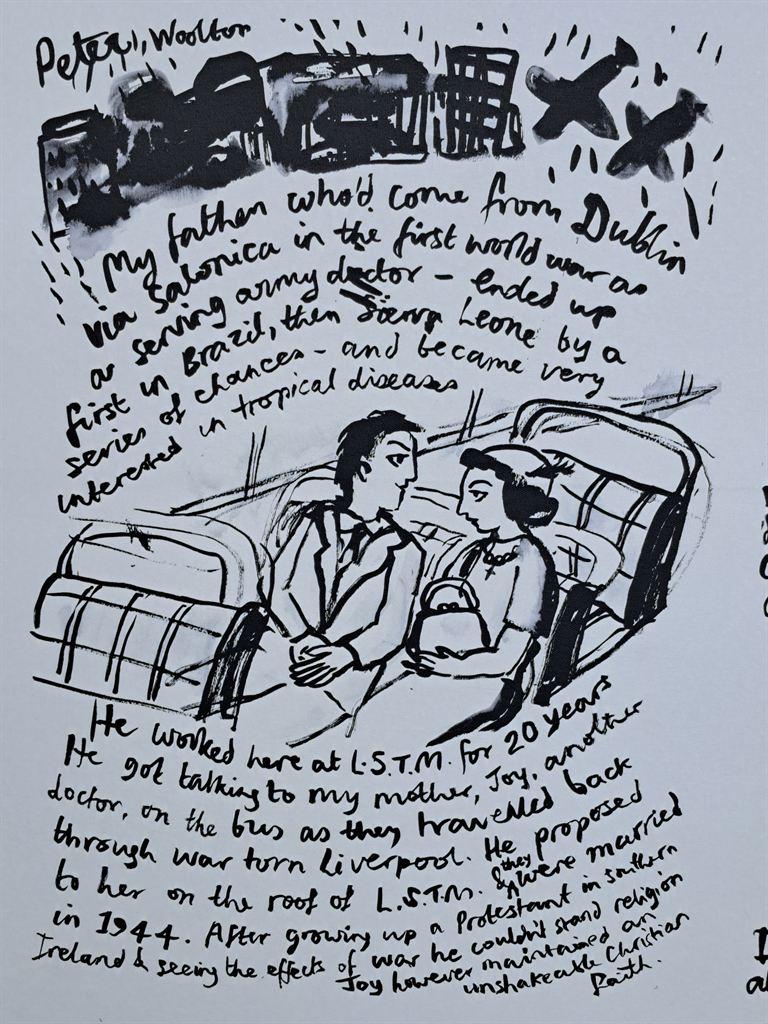 Peter, Woolton
My father who'd come from Dublin
via Salonica in the first world war as
a serving army doctor - ended up
first in Brazil, then Sierra Leone by a
series of chances - and became very
interested in tropical diseases
He worked here at L.S.T.M. for 20 years
He got talking to my mother, Joy, another
doctor, on the bus as they travelled back
through war torn Liverpool. He proposed
to her on the roof of L.S.T.M. & they were married
in 1944. After growing up a Protestant in southern
Ireland & seeing the effects of war he couldn't stand religion
Joy however maintained an
unshakeable Christian
faith.